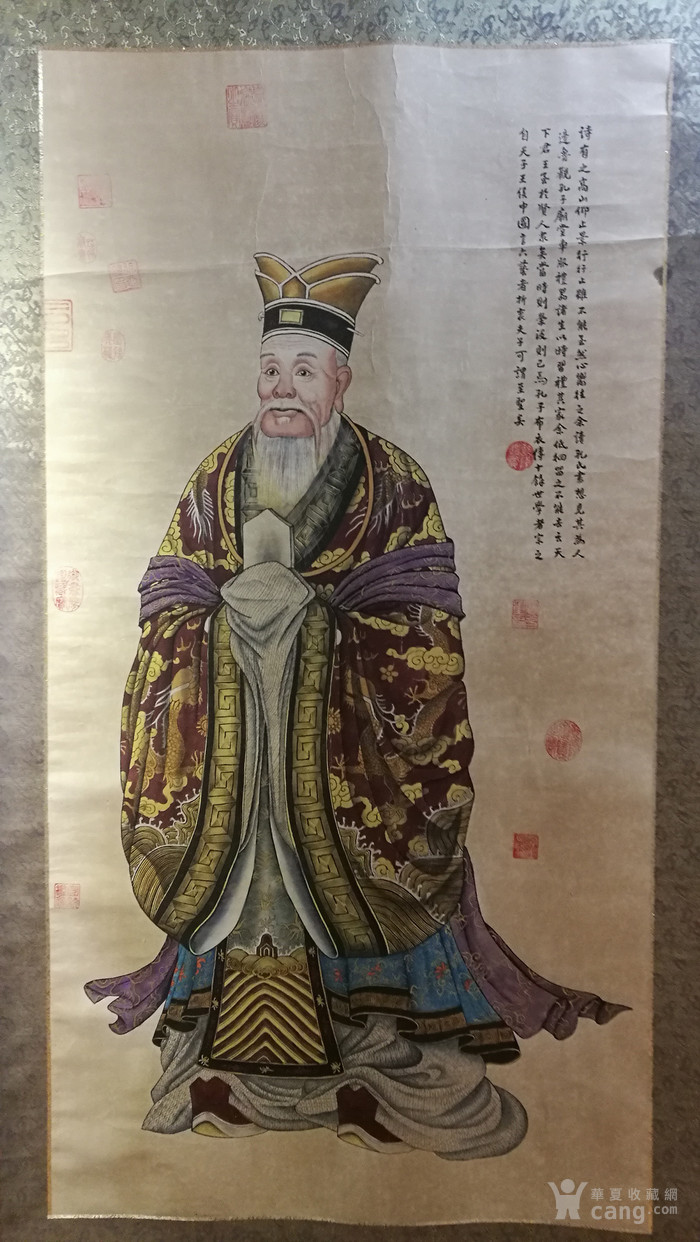 詩有之高山仰止景行行止雖不能至然心嚮往之余讀孔氏書想見其為人
適魯觀孔子廟堂車服禮器諸生以時習禮其家余低徊留之不能去云天
下君王至於賢人衆矣當時則榮沒則已焉孔子布衣傳十餘世學者宗之
自天子王侯中國言六藝者折衷夫子可謂至聖矣
華夏收藏網
cang.com